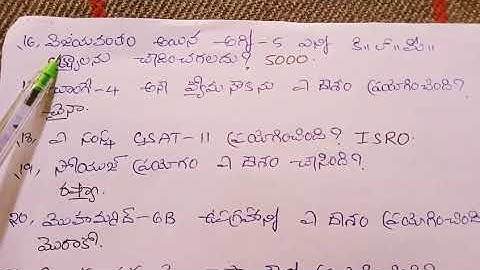 16, విజయవంతం అయిన అగ్ని-5 ఎన్ని కి॥లో॥మీ॥
లక్ష్యాలను చేధించగలదు? 5000.
చాంగే-4 అనే వ్యోమనౌకను ఏ దేశం ప్రయోగించింది?
చైనా.
18, ఏ సంస్థ GSAT-11 ప్రయోగించింది? ISRO.
19, సోయుజ్ ప్రయోగం ఏ దేశం చేసింది?
రష్యా.
20, మొహమ్మద్-6B ఉపగ్రహాన్ని ఏ దేశం ప్రయోగించింది
మొరాకో.